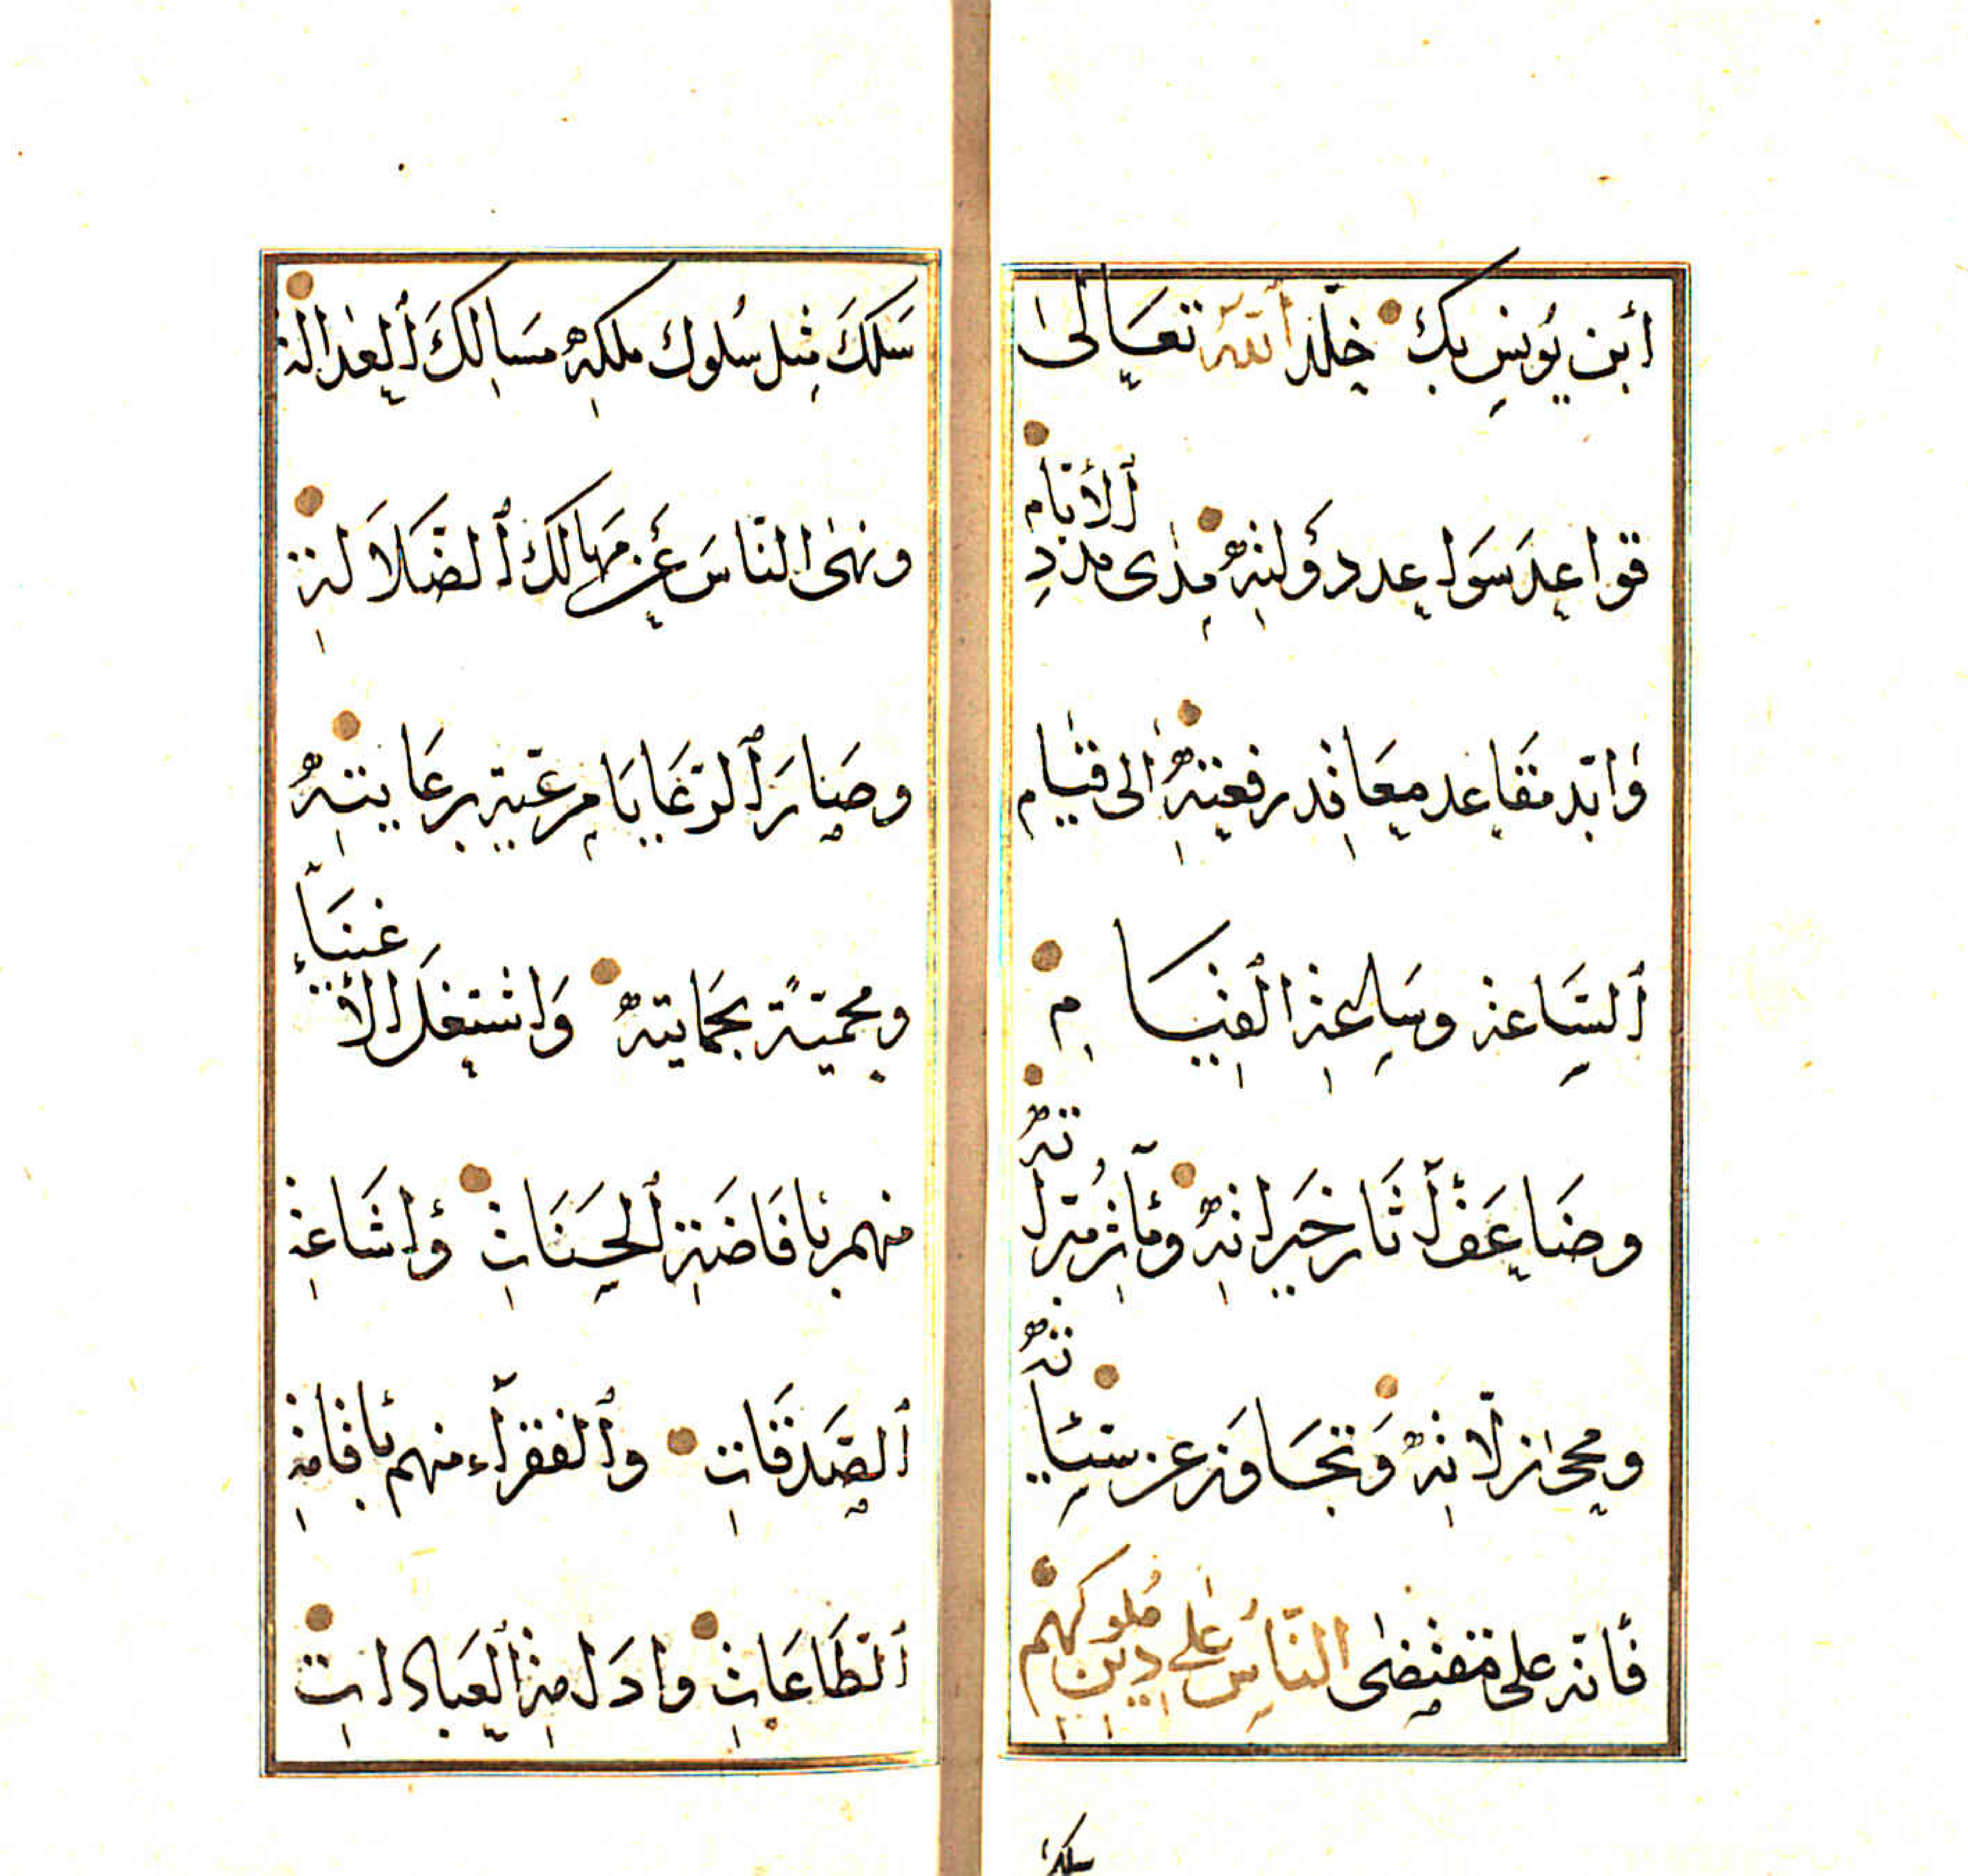 ابن يونس بك خلد الله تعالى
قواعد سواعد دولته مدى مدد الأيام
وابد مقاعد معاقد رفعته الى قيام
الساعة وساعة القيام
وضاعف آثار خيراته ومآثر مبراته
ومحى زلاته وتجاوز عن سيئاته
فانه على مقتضى الناس على دين ملوكهم
سلك
سلك مثل سلوك ملكه مسالك العدالة
ونهى الناس عن مهالك الضلالة
وصار الرعايا مرعية برعايته
ومحمية بحمايته واشتغل الأغنياء
منهم بافاضة الحسنات واشاعة
الصدقات والفقراء منهم باقامة
الطاعات وادامة العبادات